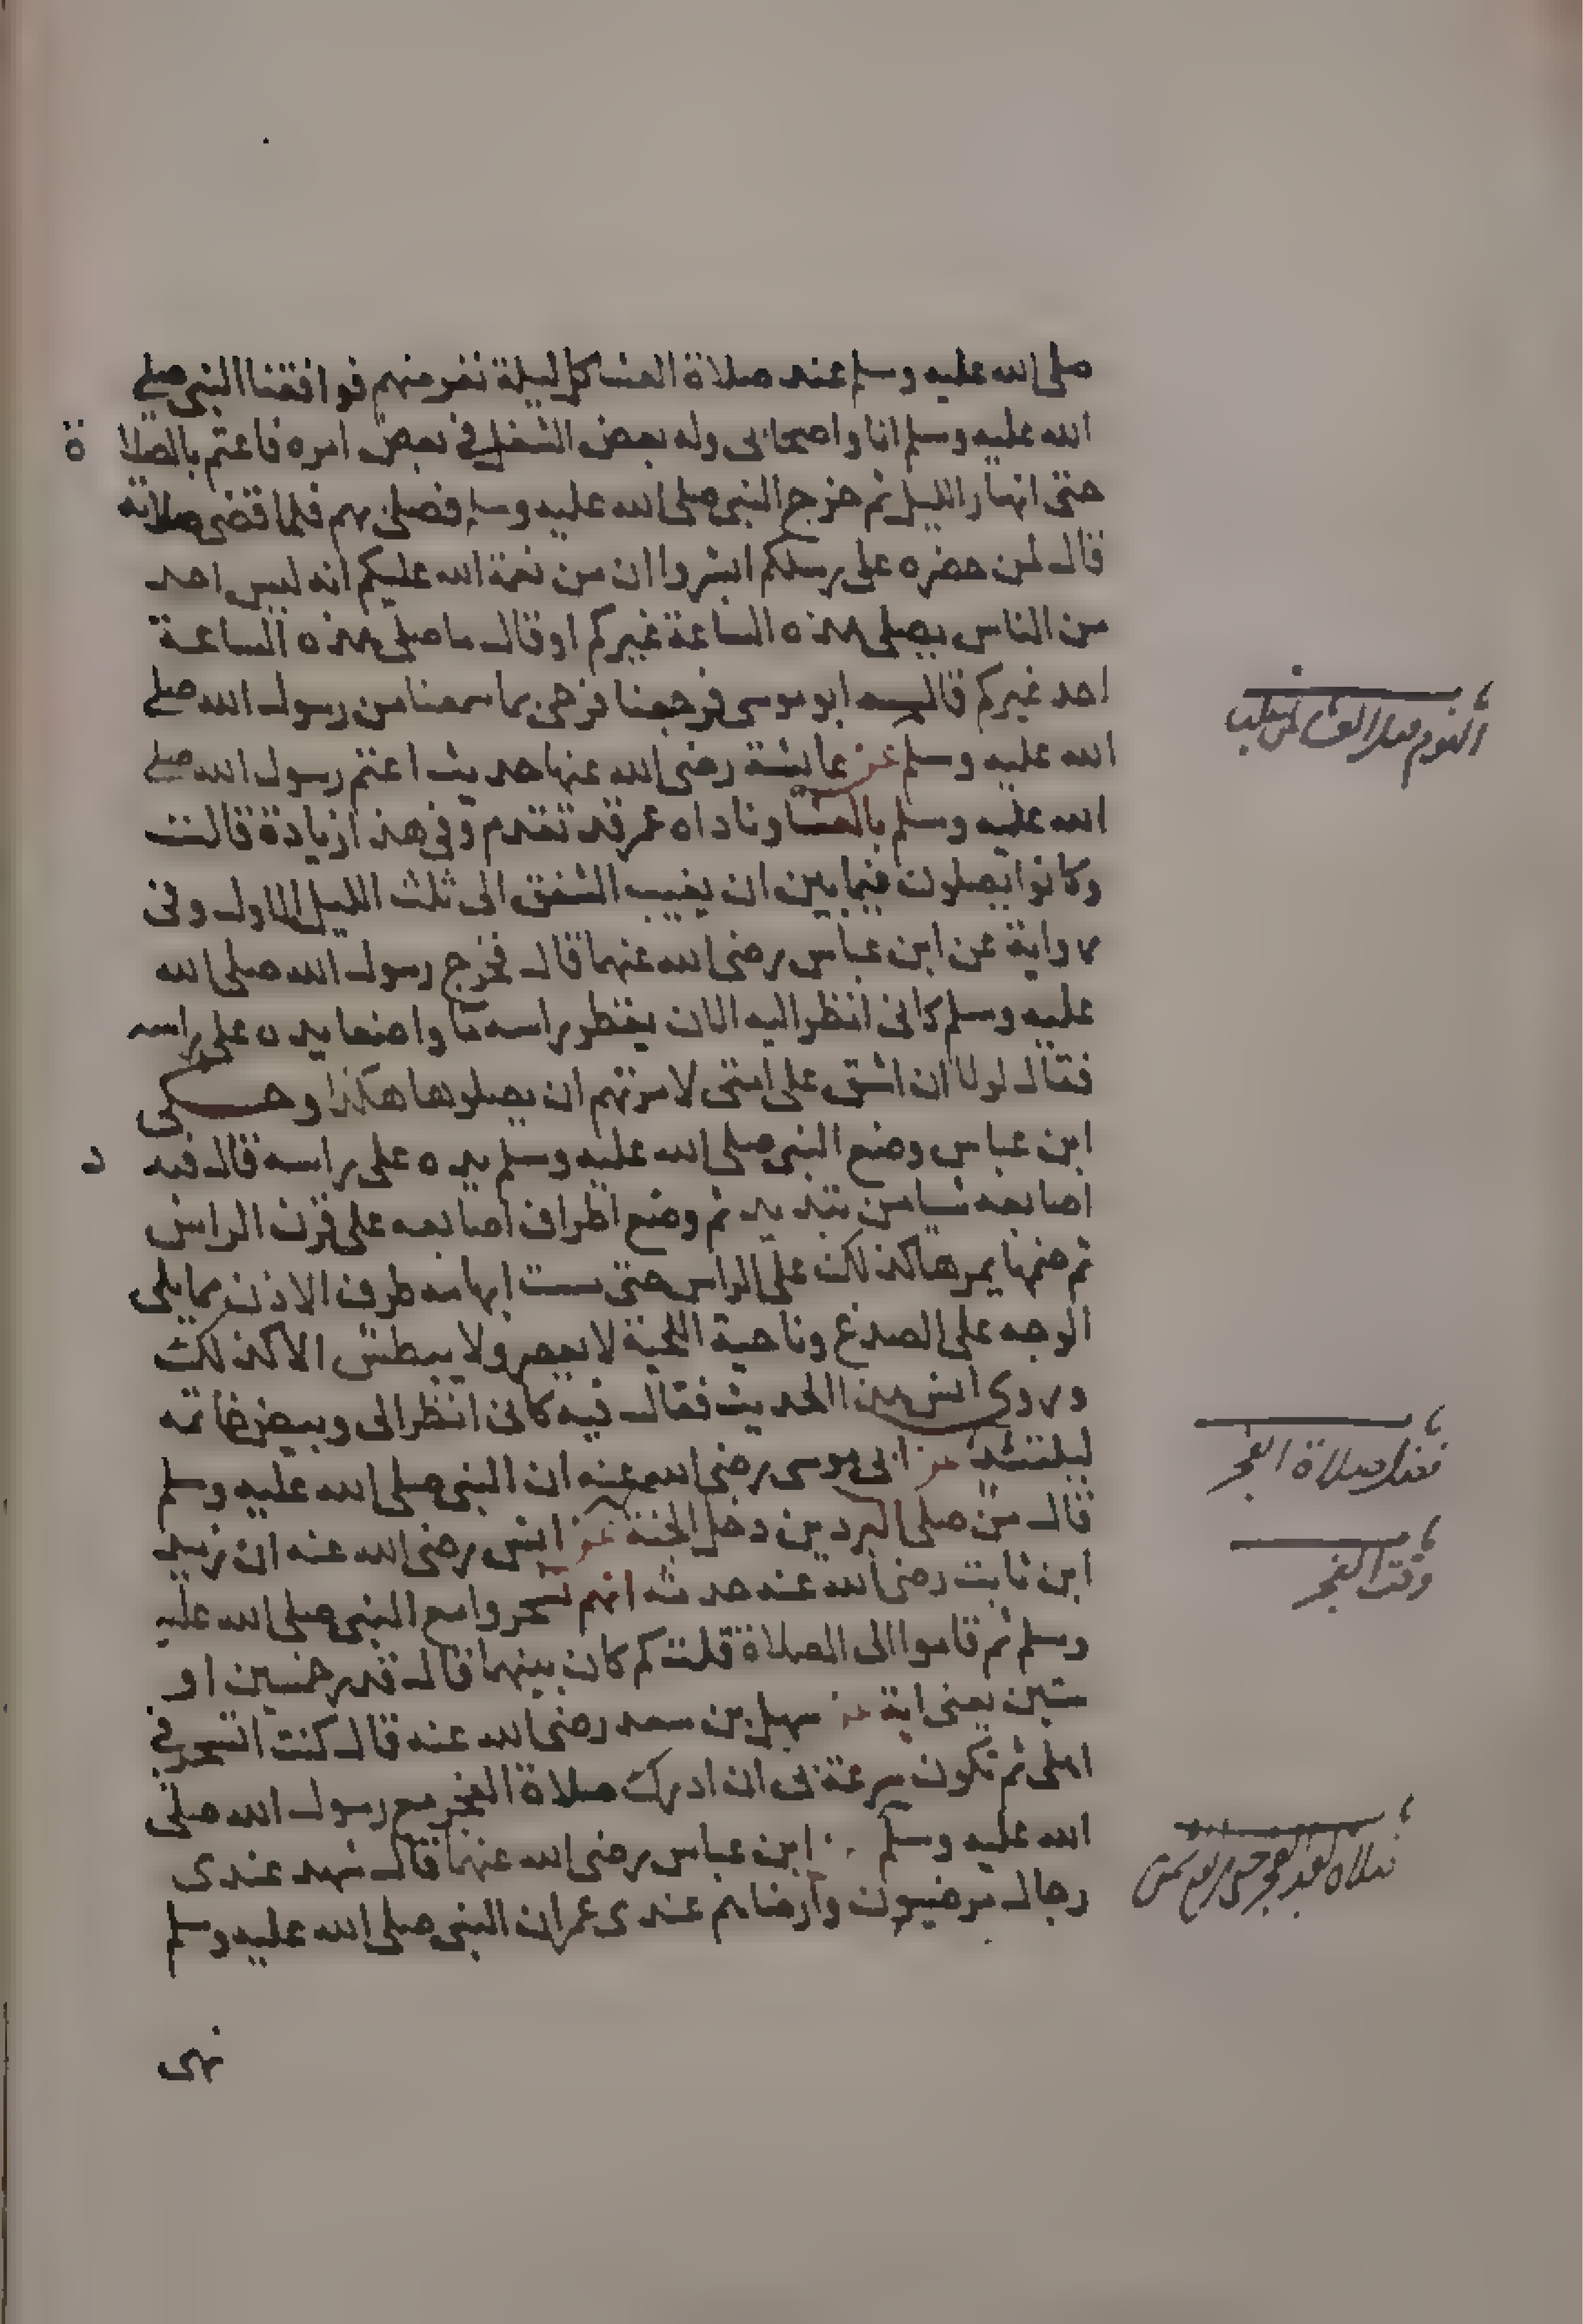 صلى الله عليه وسلم عند صلاة العشا كل ليلة نفر منهم فوافقنا النبى صلى
الله عليه وسلم انا واصحابى وله بعض الشغل فى بعض امره فاعتم بالصلاة
حتى ابهار الليل ثم خرج النبى صلى الله عليه وسلم فصلى بهم فلما قضى صلاته
قال لمن حضره على رسلكم ابشروا ان من نعمة الله عليكم انه ليس احد
من الناس يصلى هذه الساعة غيركم او قال ما صلى هذه الساعة
احد غيركم قال ابو موسى فرجعنا فرحى بما سمعنا من رسول الله صلى
النوم قبل العشا لمن غلب
الله عليه وسلم عن عايشة رضى الله عنها حديث اعتم رسول الله صلى
الله عليه وسلم بالعشا وناداه عمر قد تقدم وفى هذا زيادة قالت
وكانوا يصلون فيما بين ان يغيب الشفق الى ثلث الليل الاول وفى
رواية عن ابن عباس رضى الله عنهما قال فخرج رسول الله صلى الله
عليه وسلم كانى انظر اليه الان يقطر راسه ما واضعا يده على راسه
فقال لولا ان اشق على امتى لامرتهم ان يصلوها هكذا وحكى
ابن عباس وضع النبى صلى الله عليه وسلم يده على راسه قال فبدد
اصابعه شيا من تبديد ثم وضع اطراف اصابعه على قرن الراس
ثم ضمها يمرها كذلك على الراس حتى مست ابهامه طرف الاذن مما يلى
الوجه على الصدغ وناحية اللحية لا يعصر ولا يبطش الا كذلك
وروى انس هذا الحديث فقال فيه كانى انظر الى وبيص خاتمه
فضل صلاة الفجر
ليلتئذ عن ابى موسى رضى الله عنه ان النبى صلى الله عليه وسلم
قال من صلى البردين دخل الجنة عن انس رضى الله عنه ان زيد
وقت الفجر
ابن ثابت رضى الله عنه حدثه انهم تسحروا مع النبى صلى الله عليه
وسلم ثم قاموا الى الصلاة قلت كم كان بينهما قال قدر خمسين او
ستين يعنى اية عن سهل بن سعد رضى الله عنه قال كنت اتسحر فى
اهلى ثم تكون سرعة بى ان ادرك صلاة الفجر مع رسول الله صلى
الله عليه وسلم ابن عباس رضى الله عنهما قال شهد عندى
الصلاة بعد الفجر حتى ترتفع الشمس
رجال مرضيون وارضاهم عندى عمر ان النبى صلى الله عليه وسلم
نهى